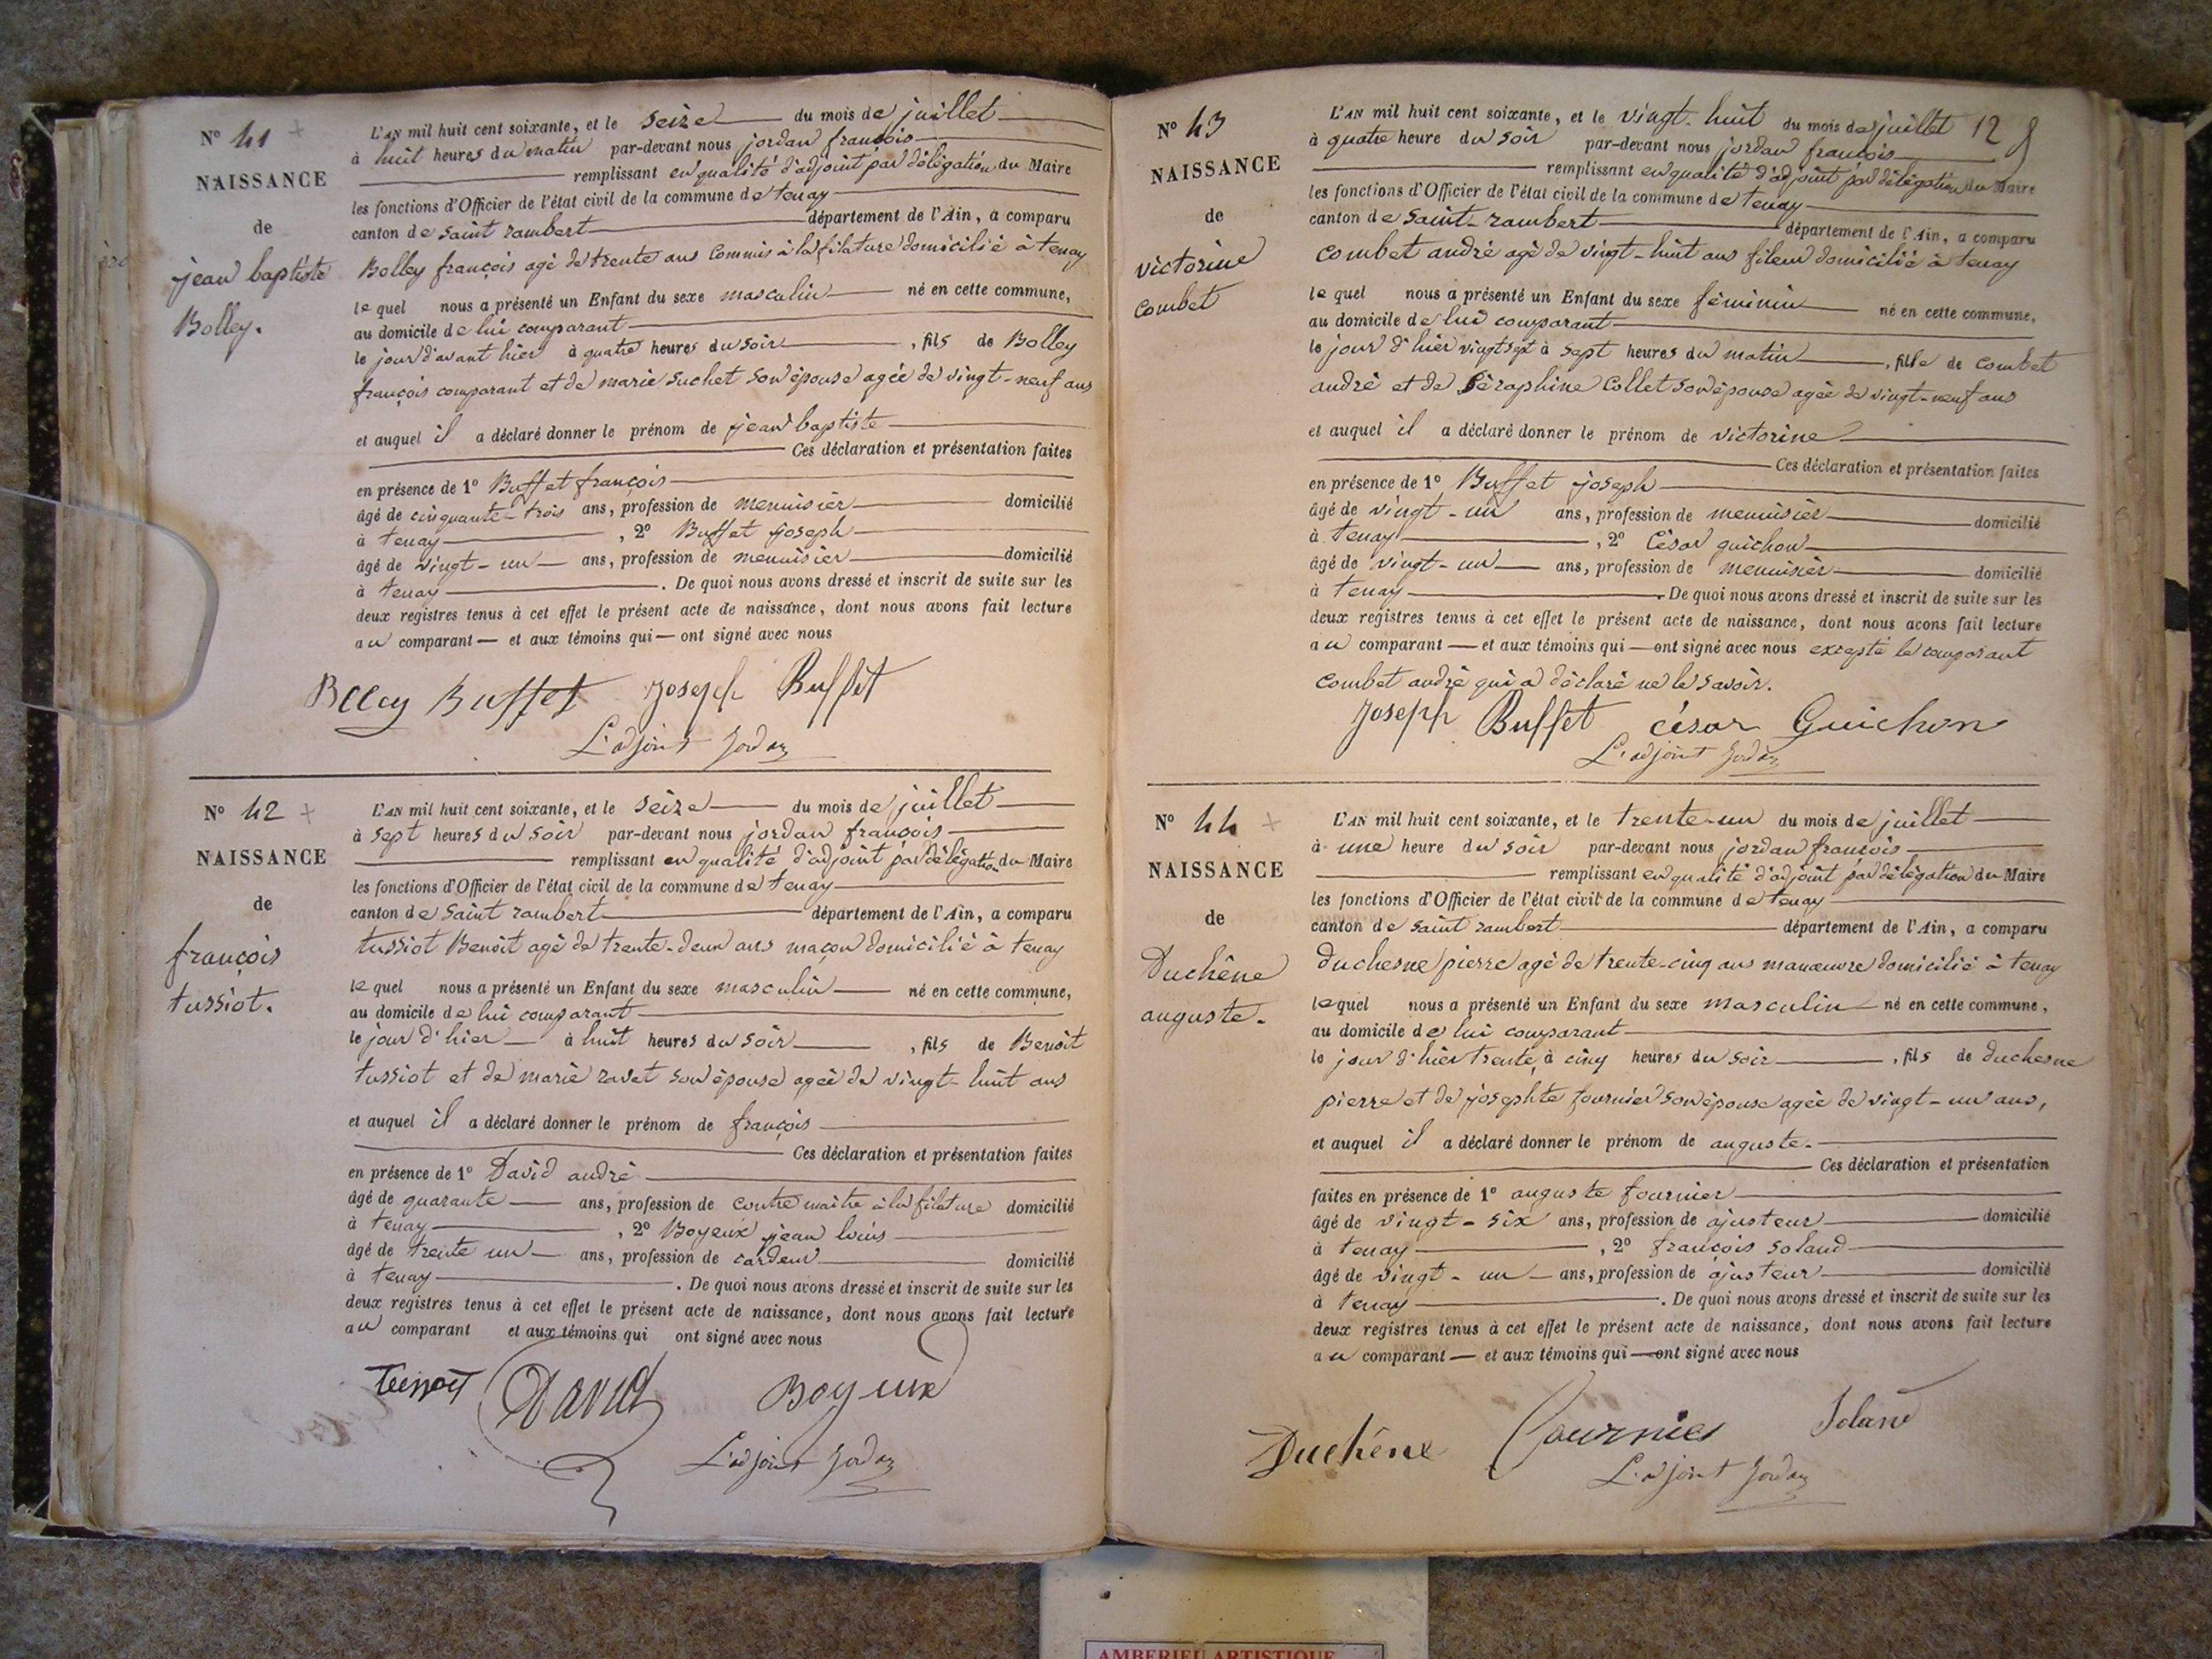 N° 41
NAISSANCE
de
jean baptiste
Bolley.
L'AN mil huit cent soixante, et le seize du mois de juillet
à huit heures du matin par-devant nous jordan françois
remplissant en qualité d'adjoint par délégation du Maire
les fonctions d'Officier de l'état civil de la commune de tenay
canton de saint rambert département de l'Ain, a comparu
Bolley françois agé de trente ans commis à la filature domicilié à tenay
le quel nous a présenté un Enfant du sexe masculin né en cette commune,
au domicile de lui comparant
le jour d'avant hier à quatre heures du soir, fils de Bolley
françois comparant et de marie suchet son épouse agée de vingt-neuf ans
et auquel il a déclaré donner le prénom de jean baptiste
Ces déclaration et présentation faites
en présence de 1° Buffet françois
âgé de cinquante-trois ans, profession de menuisier domicilié
à tenay, 2° Buffet joseph
âgé de vingt-un ans, profession de menuisier domicilié
à tenay. De quoi nous avons dressé et inscrit de suite sur les
deux registres tenus à cet effet le présent acte de naissance, dont nous avons fait lecture
au comparant et aux témoins qui ont signé avec nous
Buffet Joseph Buffet
L'adjoint Jordan
N° 42
NAISSANCE
de
françois
tussiot.
L'AN mil huit cent soixante, et le seize du mois de juillet
à sept heures du soir par-devant nous jordan françois
remplissant en qualité d'adjoint par délégation du Maire
les fonctions d'Officier de l'état civil de la commune de tenay
canton de saint rambert département de l'Ain, a comparu
tussiot Benoit agé de trente-deux ans maçon domicilié à tenay
le quel nous a présenté un Enfant du sexe masculin né en cette commune,
au domicile de lui comparant
le jour d'hier à huit heures du soir, fils de Benoit
tussiot et de marie ravet son épouse agée de vingt-huit ans
et auquel il a déclaré donner le prénom de françois
Ces déclaration et présentation faites
en présence de 1° David andré
âgé de quarante ans, profession de contre maitre à la filature domicilié
à tenay, 2° Boyeux jean louis
âgé de trente un ans, profession de cardeur domicilié
à tenay. De quoi nous avons dressé et inscrit de suite sur les
deux registres tenus à cet effet le présent acte de naissance, dont nous avons fait lecture
au comparant et aux témoins qui ont signé avec nous
David Boyeux
L'adjoint Jordan
N° 43
NAISSANCE
de
victorine
combet
12
L'AN mil huit cent soixante, et le vingt-huit du mois de juillet
à quatre heure du soir par-devant nous jordan françois
remplissant en qualité d'adjoint par délégation du Maire
les fonctions d'Officier de l'état civil de la commune de tenay
canton de saint-rambert département de l'Ain, a comparu
combet andré agé de vingt-huit ans fileur domicilié à tenay
le quel nous a présenté un Enfant du sexe féminin né en cette commune,
au domicile de lui comparant
le jour d'hier vingt sept à sept heures du matin, fille de combet
andré et de Séraphine Collet son épouse agée de vingt-neuf ans
et auquel il a déclaré donner le prénom de victorine
Ces déclaration et présentation faites
en présence de 1° Buffet joseph
âgé de vingt-un ans, profession de menuisier domicilié
à tenay, 2° César guichon
âgé de vingt-un ans, profession de menuisier domicilié
à tenay. De quoi nous avons dressé et inscrit de suite sur les
deux registres tenus à cet effet le présent acte de naissance, dont nous avons fait lecture
au comparant et aux témoins qui ont signé avec nous excepté le comparant
combet andré qui a déclaré ne le savoir.
Joseph Buffet césar Guichon
L'adjoint Jordan
N° 44
NAISSANCE
de
Duchêne
auguste.
L'AN mil huit cent soixante, et le trente-un du mois de juillet
à une heure du soir par-devant nous jordan françois
remplissant en qualité d'adjoint par délégation du Maire
les fonctions d'Officier de l'état civil de la commune de tenay
canton de saint rambert département de l'Ain, a comparu
duchesne pierre agé de trente-cinq ans manœuvre domicilié à tenay
lequel nous a présenté un Enfant du sexe masculin né en cette commune,
au domicile de lui comparant
le jour d'hier trente, à cinq heures du soir, fils de duchesne
pierre et de josephte fournier son épouse agée de vingt-un ans,
et auquel il a déclaré donner le prénom de auguste.
Ces déclaration et présentation
faites en présence de 1° auguste fournier
âgé de vingt-six ans, profession de ajusteur domicilié
à tenay, 2° françois soland
âgé de vingt-un ans, profession de ajusteur domicilié
à tenay. De quoi nous avons dressé et inscrit de suite sur les
deux registres tenus à cet effet le présent acte de naissance, dont nous avons fait lecture
au comparant et aux témoins qui ont signé avec nous
Duchêne fournier Soland
L'adjoint Jordan
AMBERIEU ARTISTIQUE